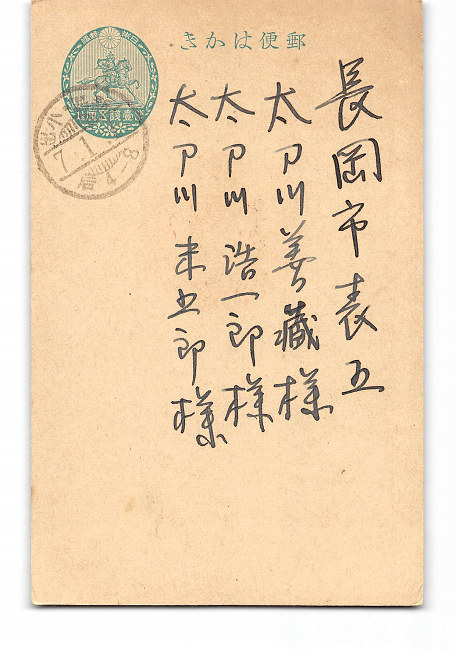 郵便はかき
長岡市表五
太刀川善藏様
太刀川浩一郎様
太刀川末五郎様
7.1